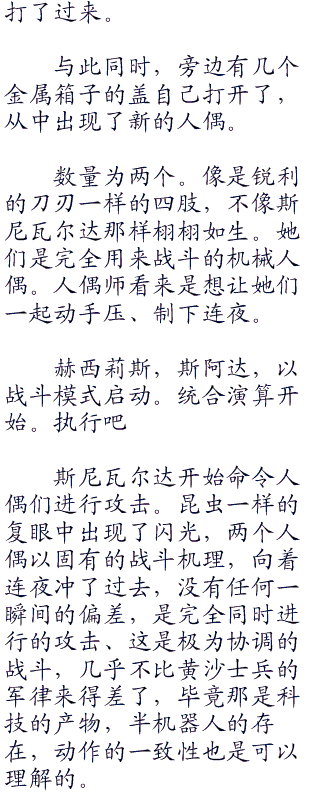 打了过来。
与此同时，旁边有几个
金属箱子的盖自己打开了，
从中出现了新的人偶。
数量为两个。像是锐利
的刀刃一样的四肢，不像斯
尼瓦尔达那样栩栩如生。她
们是完全用来战斗的机械人
偶。人偶师看来是想让她们
一起动手压、制下连夜。
赫西莉斯，斯阿达，以
战斗模式启动。统合演算开
始。执行吧
斯尼瓦尔达开始命令人
偶们进行攻击。昆虫一样的
复眼中出现了闪光，两个人
偶以固有的战斗机理，向着
连夜冲了过去，没有任何一
瞬间的偏差，是完全同时进
行的攻击、这是极为协调的
战斗，几乎不比黄沙士兵的
军律来得差了，毕竟那是科
技的产物，半机器人的存
在，动作的一致性也是可以
理解的。